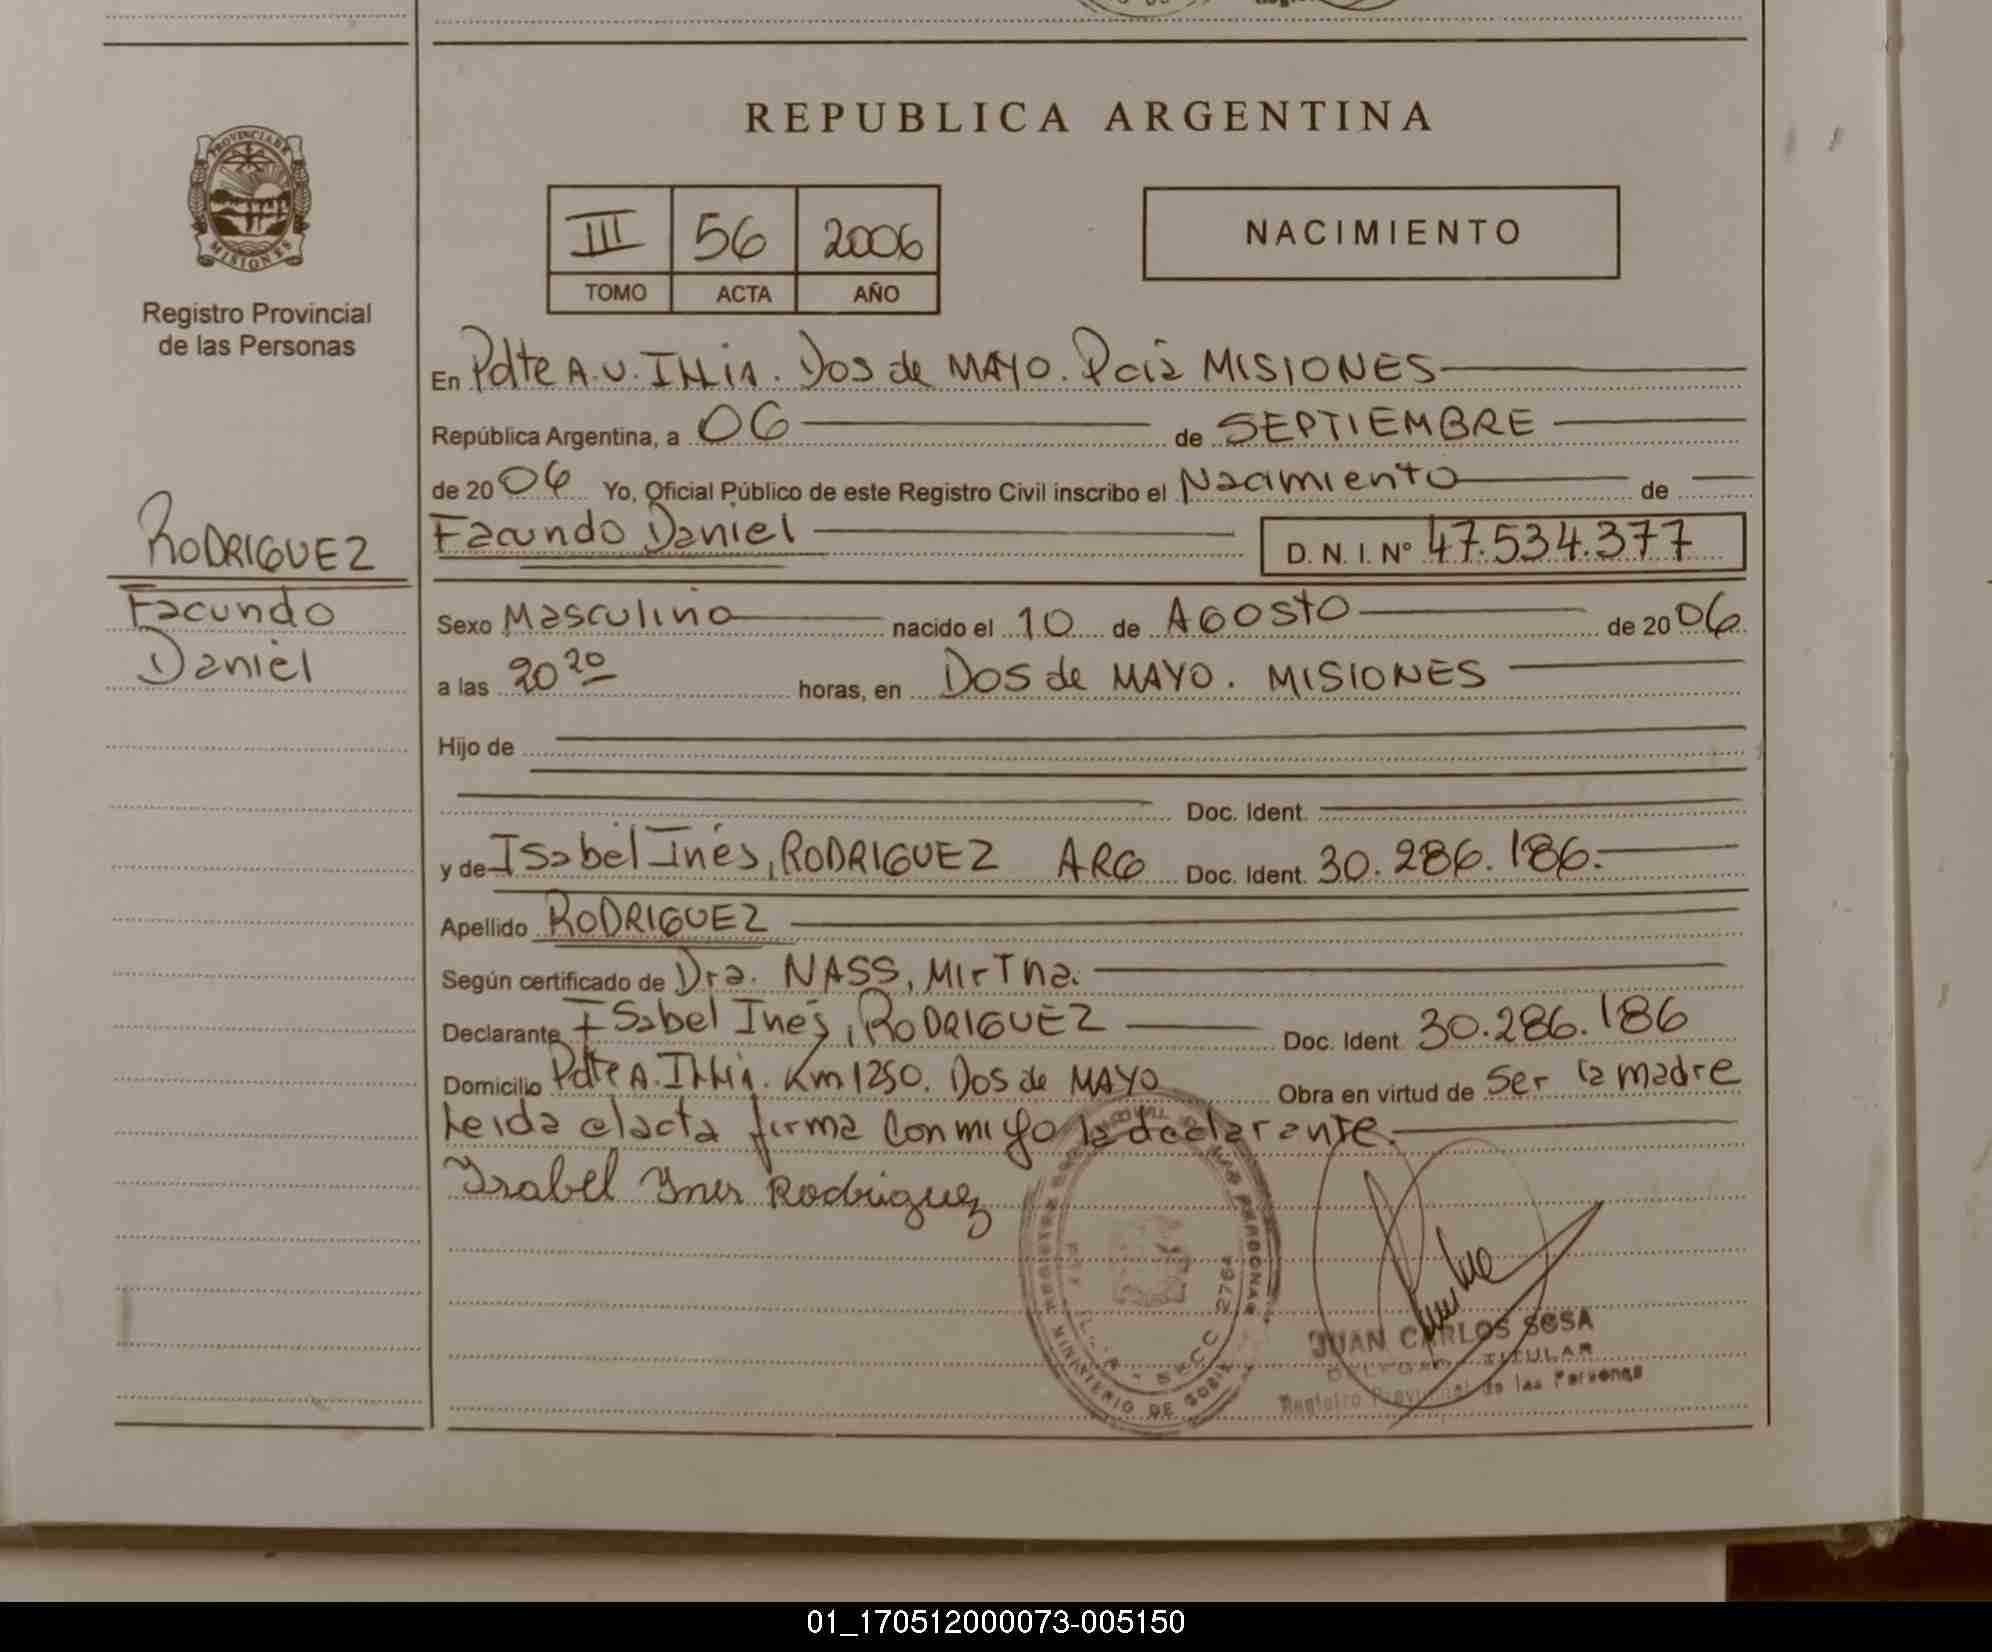 REPUBLICA ARGENTINA
PROVINCIA DE
MISIONES
Registro Provincial
de las Personas
III 56 2006
TOMO ACTA AÑO
NACIMIENTO
En Pdte A.U. Illia. Dos de MAYO. Pcia MISIONES
República Argentina, a 06 de SEPTIEMBRE
de 20 06 Yo, Oficial Público de este Registro Civil inscribo el Nacimiento de
Facundo Daniel D. N. I. Nº 47.534.377
RODRIGUEZ
Facundo
Daniel
Sexo Masculino nacido el 10 de AGOSTO de 20 06
a las 20 20 horas, en Dos de MAYO. MISIONES
Hijo de
Doc. Ident.
y de Isabel Inés, RODRIGUEZ ARG Doc. Ident. 30.286.186.
Apellido RODRIGUEZ
Según certificado de Dra. NASS, Mirtha.
Declarante Isabel Inés, RODRIGUEZ Doc. Ident. 30.286.186
Domicilio Pdte A. Illia. Km 1250. Dos de MAYO Obra en virtud de ser la madre
Leida el acta firma conmigo la declarante.
Isabel Ines Rodriguez
MINISTERIO DE GOBIE
SECC. 2764
JUAN CARLOS SOSA
TITULAR
Registro Provincial de las Personas
01_170512000073-005150